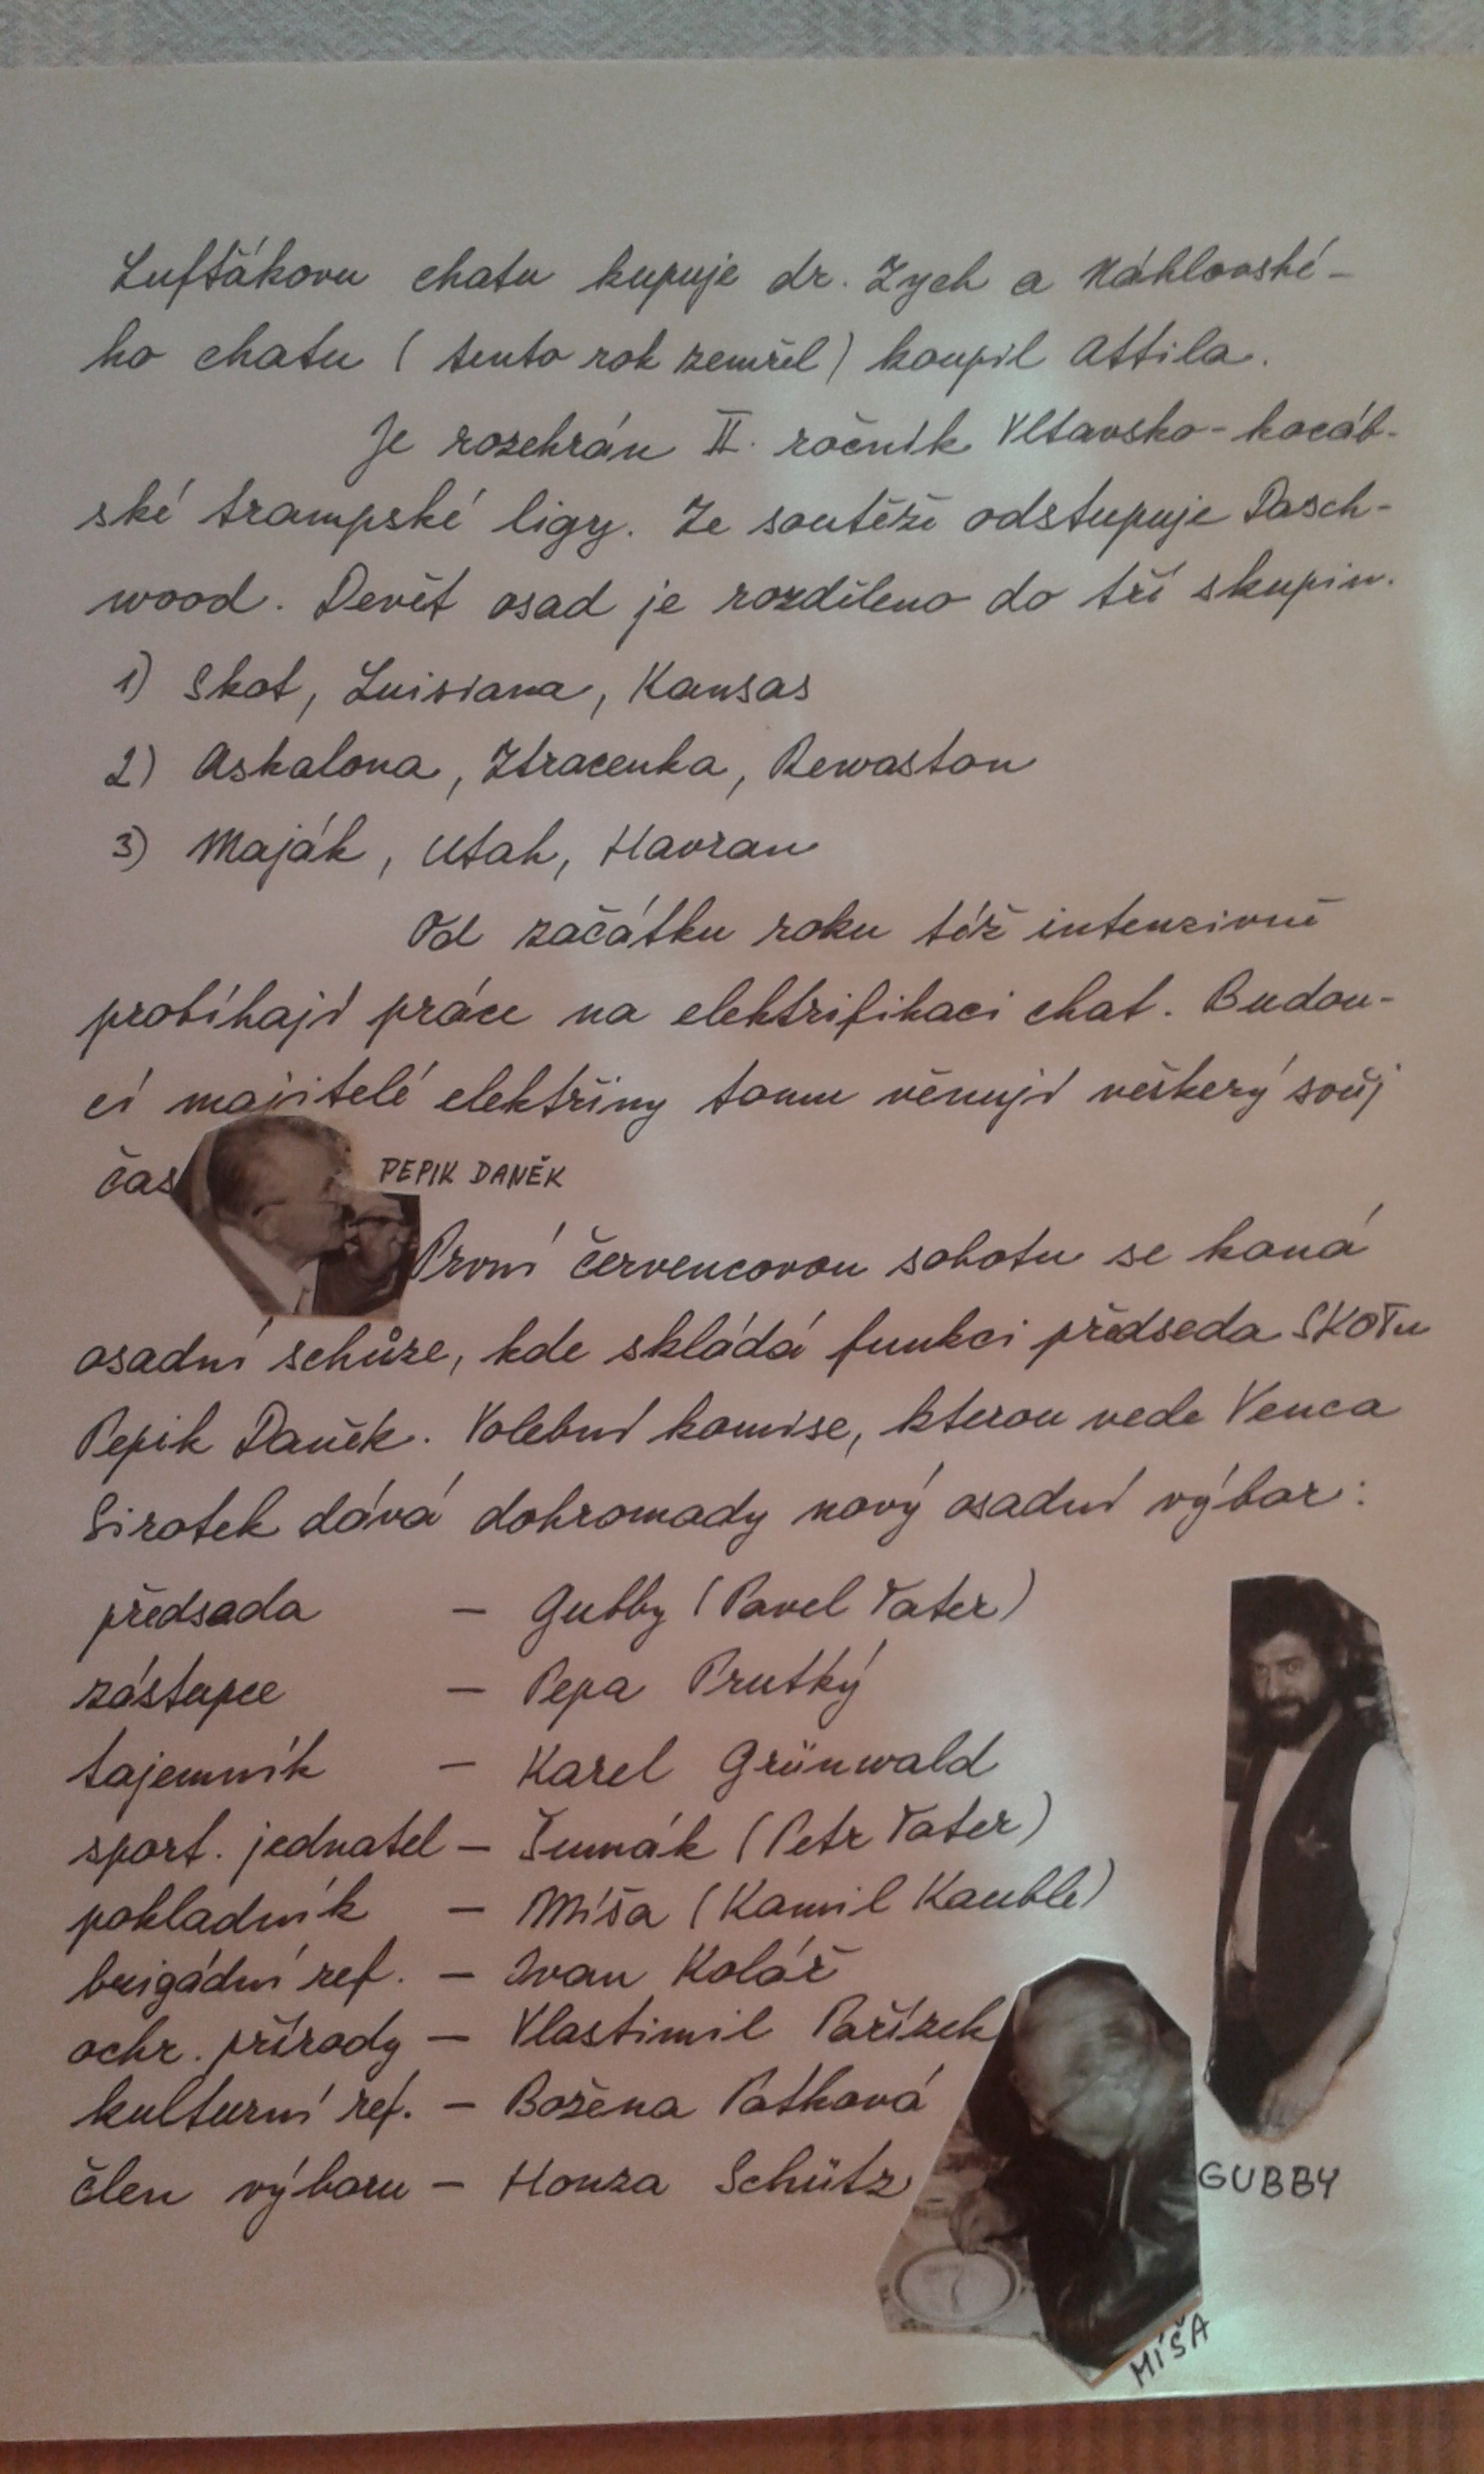 Lufťákovu chatu kupuje dr. Zych a Náhlovské-
ho chatu (tento rok zemřel) koupil Attila.
Je rozehrán II. ročník Vltavsko-kocáb-
ské trampské ligy. Ze soutěže odstupuje Dasch-
wood. Devět osad je rozděleno do tří skupin.
1) Skot, Luisiana, Kansas
2) Askalona, Ztracenka, Rewaston
3) Maják, Utah, Havran
Od začátku roku též intenzivně
probíhají práce na elektrifikaci chat. Budou-
cí majitelé elektřiny tomu věnují veškerý svůj
čas
PEPIK DANĚK
První červencovou sobotu se koná
osadní schůze, kde skládá funkci předseda SKOTu
Pepik Daněk. Volební komise, kterou vede Venca
Sirotek dává dohromady nový osadní výbor:
předsada – Gubby (Pavel Vater)
zástupce – Pepa Prutký
tajemník – Karel Grünwald
sport. jednatel – Šumák (Petr Vater)
pokladník – Míša (Kamil Kauble)
brigádní ref. – Ivan Kolář
ochr. přírody – Vlastimil Pařízek
kulturní ref. – Božena Paťhová
člen výboru – Honza Schütz
GUBBY
MÍŠA